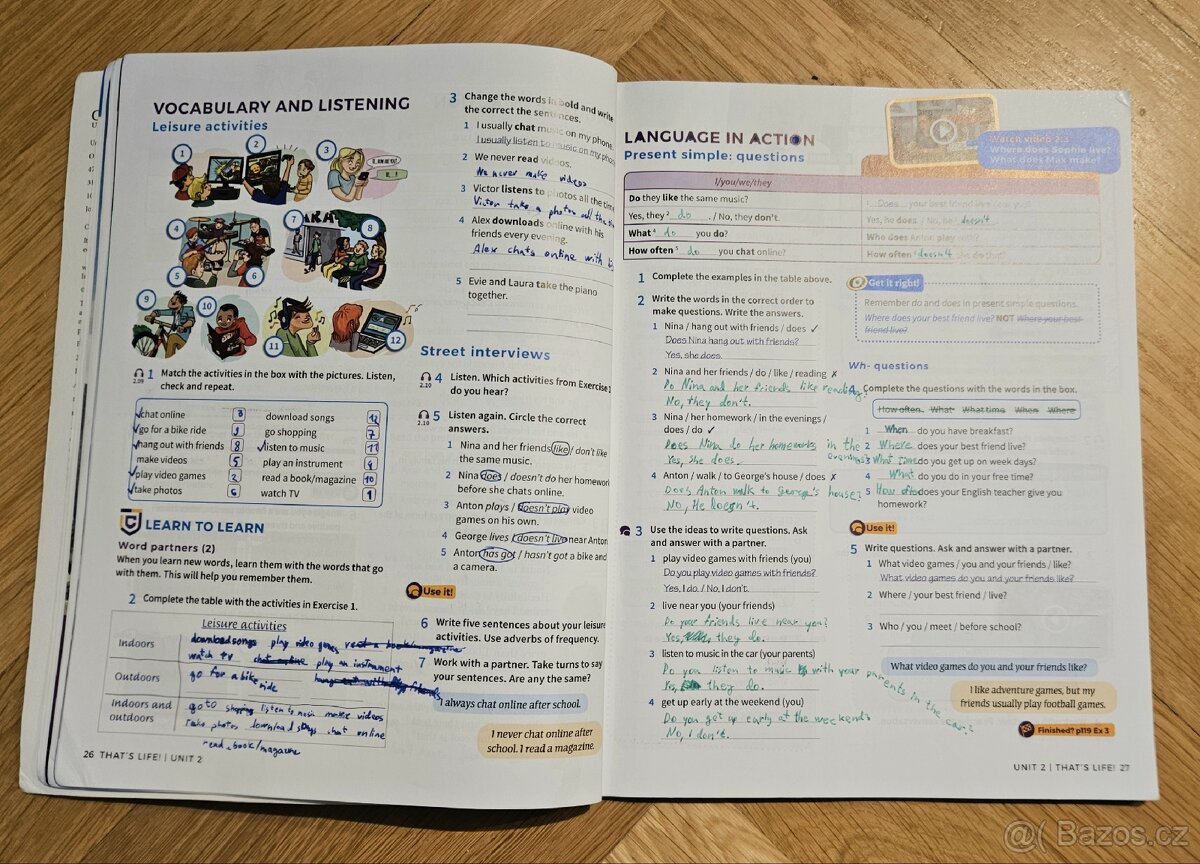 VOCABULARY AND LISTENING
Leisure activities
1
2
3
4
5
6
7
8
9
10
11
12
2.09
1 Match the activities in the box with the pictures. Listen,
check and repeat.
chat online 3 download songs 12
go for a bike ride 9 go shopping 7
hang out with friends 8 listen to music 11
make videos 5 play an instrument 4
play video games 2 read a book/magazine 10
take photos 6 watch TV 1
LEARN TO LEARN
Word partners (2)
When you learn new words, learn them with the words that go
with them. This will help you remember them.
2 Complete the table with the activities in Exercise 1.
Leisure activities
Indoors
download songs play video games read a book/magazine
watch TV chat online play an instrument
Outdoors
go for a bike hang out with friends
ride
Indoors and
outdoors
go to shopping listen to music make videos
take photos download songs chat online
read book/magazine
26 THAT'S LIFE! | UNIT 2
3 Change the words in bold and write
the correct the sentences.
1 I usually chat music on my phone.
I usually listen to music on my phone
2 We never read videos.
We never make videos
3 Victor listens to photos all the time
Victor take a photos all the
4 Alex downloads online with his
friends every evening.
Alex chats online with
5 Evie and Laura take the piano
together.
Street interviews
2.10
4 Listen. Which activities from Exercise 1
do you hear?
2.10
5 Listen again. Circle the correct
answers.
1 Nina and her friends like / don't like
the same music.
2 Nina does / doesn't do her homework
before she chats online.
3 Anton plays / doesn't play video
games on his own.
4 George lives / doesn't live near Anton
5 Anton has got / hasn't got a bike and
a camera.
Use it!
6 Write five sentences about your leisure
activities. Use adverbs of frequency.
7 Work with a partner. Take turns to say
your sentences. Are any the same?
I always chat online after school.
I never chat online after
school. I read a magazine.
LANGUAGE IN ACTION
Present simple: questions
Watch video 2.3
Where does Sophie live?
What does Max make?
I/you/we/they
Do they like the same music?
Yes, they 2 do . / No, they don't.
What 4 do you do?
How often 5 do you chat online?
1 Does your best friend
Yes, he does. / No, he 3 doesn't
Who does Anton play with?
How often 6 doesn't she do that?
1 Complete the examples in the table above.
2 Write the words in the correct order to
make questions. Write the answers.
1 Nina / hang out with friends / does ✓
Does Nina hang out with friends?
Yes, she does.
2 Nina and her friends / do / like / reading ✗
Do Nina and her friends like reading?
No, they don't.
3 Nina / her homework / in the evenings /
does / do ✓
Does Nina do her homeworks in the
evenings?
Yes, she does.
4 Anton / walk / to George's house / does ✗
Does Anton walk to George's house?
No, He doesn't.
3 Use the ideas to write questions. Ask
and answer with a partner.
1 play video games with friends (you)
Do you play video games with friends?
Yes, I do. / No, I don't.
2 live near you (your friends)
Do your friends live near you?
Yes, they do.
3 listen to music in the car (your parents)
Do you listen to music with your parents in the car?
Yes, they do.
4 get up early at the weekend (you)
Do you get up early at the weekends
No, I don't.
Get it right!
Remember do and does in present simple questions.
Where does your best friend live? NOT Where your best
friend live?
Wh- questions
4 Complete the questions with the words in the box.
How often What What time When Where
1 When do you have breakfast?
2 Where does your best friend live?
3 What time do you get up on week days?
4 What do you do in your free time?
5 How often does your English teacher give you
homework?
Use it!
5 Write questions. Ask and answer with a partner.
1 What video games / you and your friends / like?
What video games do you and your friends like?
2 Where / your best friend / live?
3 Who / you / meet / before school?
What video games do you and your friends like?
I like adventure games, but my
friends usually play football games.
Finished? p119 Ex 3
UNIT 2 | THAT'S LIFE! 27
@( Bazos.cz